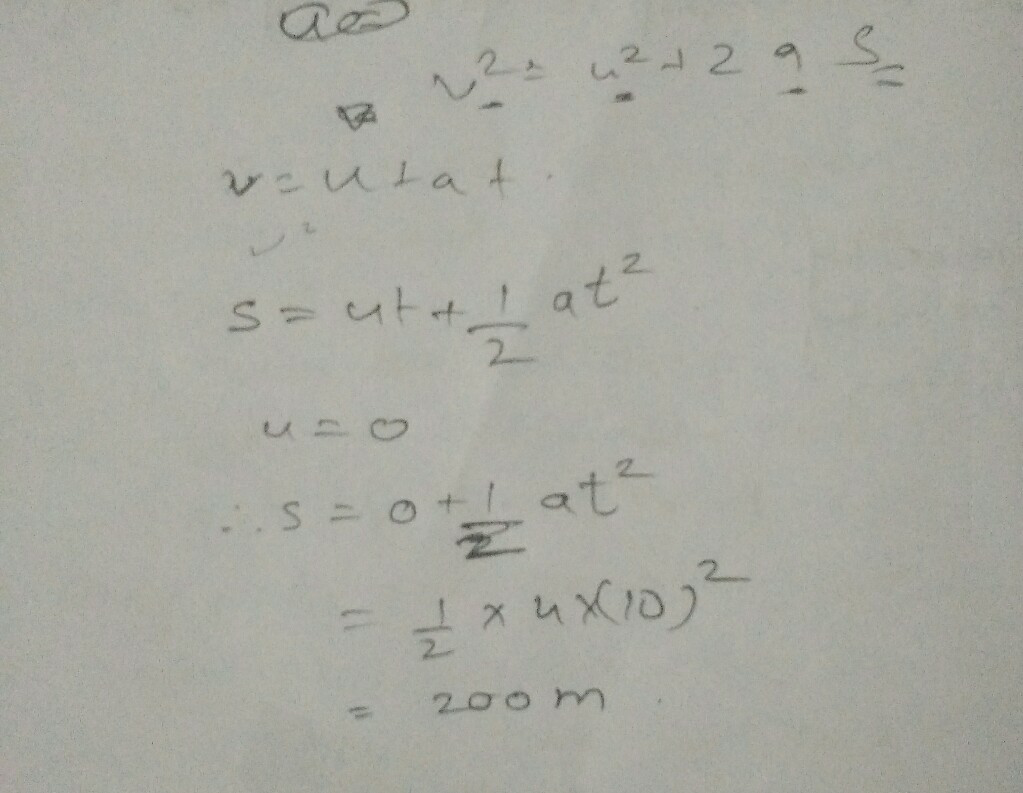 v² = u² + 2 a s
v = u + a t.
v²
s = ut + 1/2 at²
u = 0
∴ s = 0 + 1/2 at²
= 1/2 x 4 x (10)²
= 200 m.